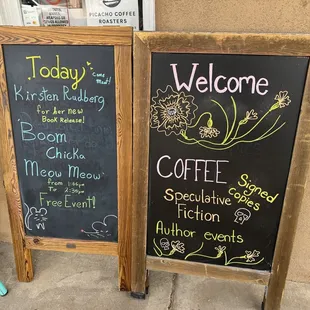 PICACHO COFFEE
ROASTERS
Today
Come
Meet!
Kirsten Rudberg
for her new
Book Release!
Boom
Chicka
Meow Meow!
from
To
Free Event!
Welcome
COFFEE
Signed
copies
Speculative
Fiction
Author events